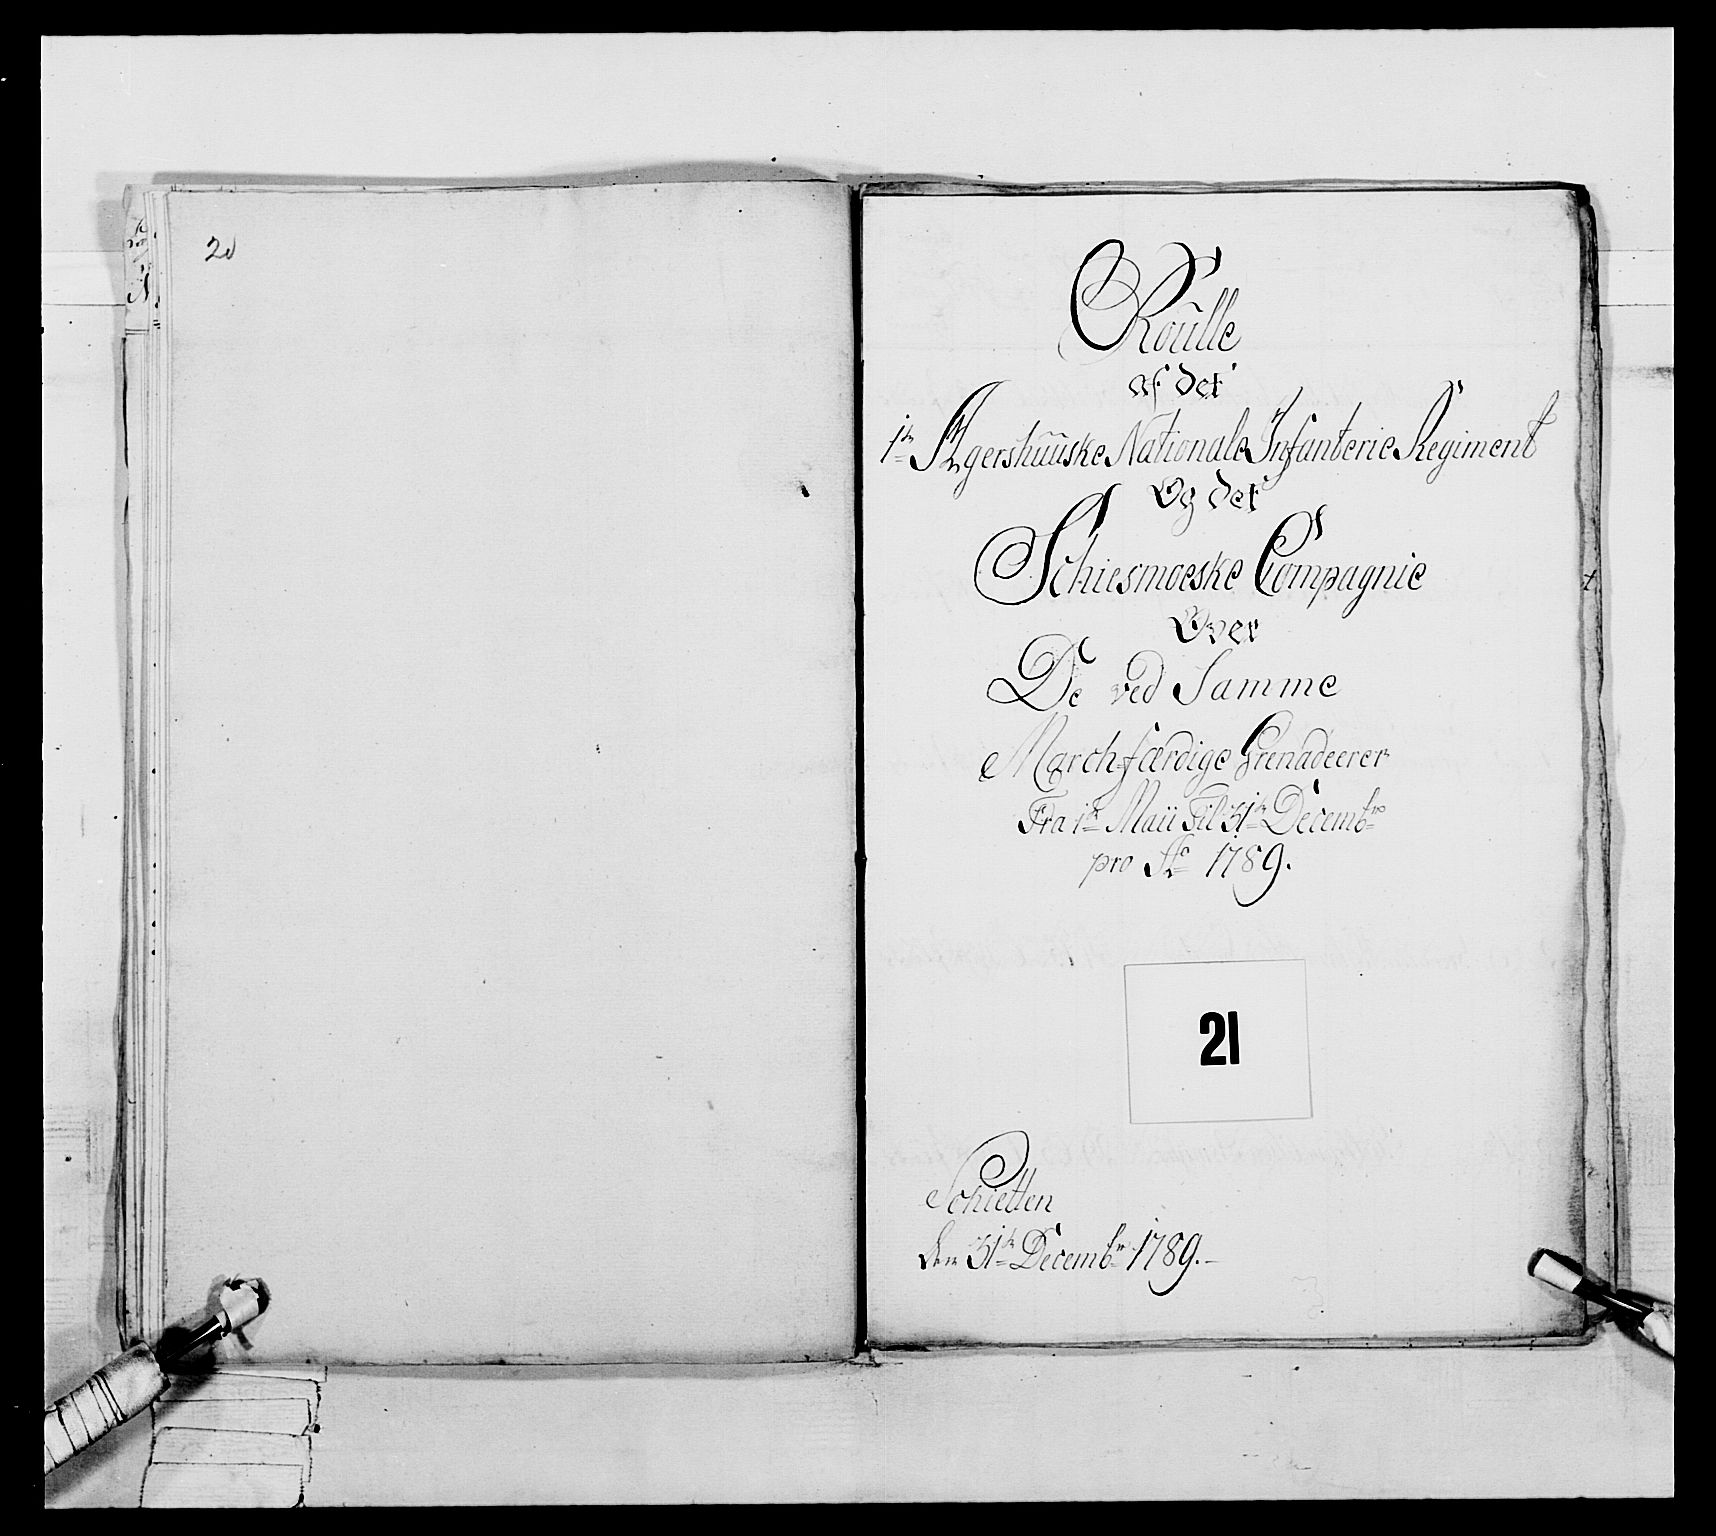 20
Roulle
af det
1te Agershuuske Nationale Infanterie Regiment
Og det
Schiesmoeske Compagnie
Over
De ved Samme
March-færdige Grenadeerer
Fra 1te Maii Til 31te Decembr
pro Ao 1789.
21
Schietten
den 31te Decembr 1789.-